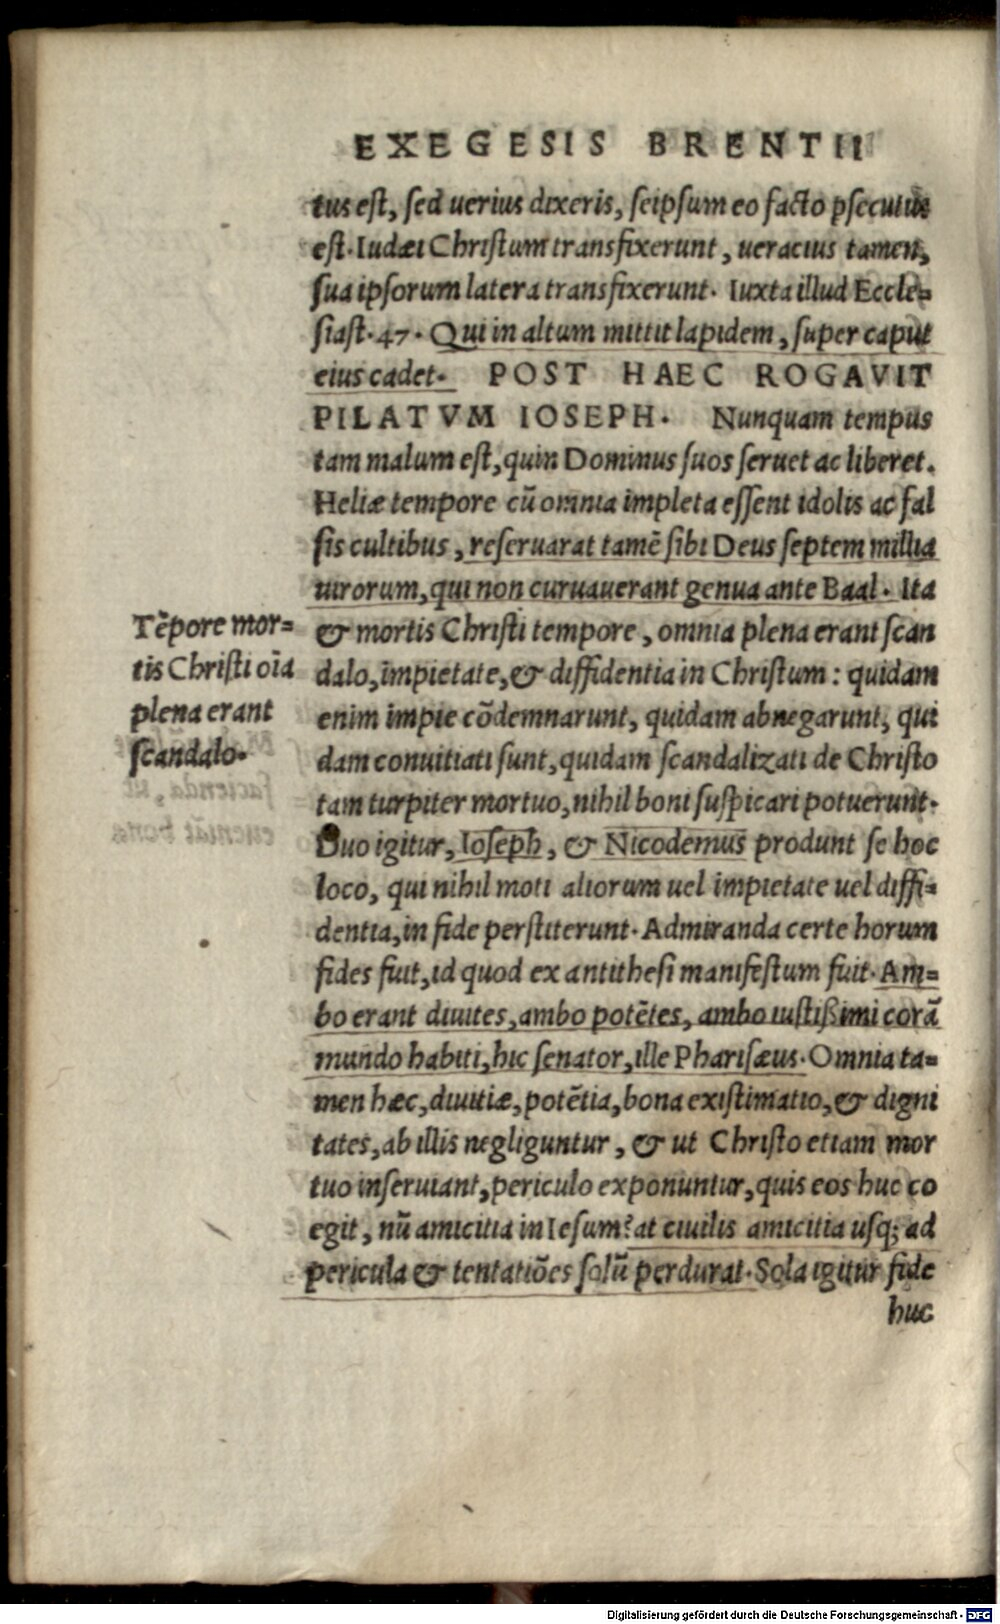 EXEGESIS BRENTII
tus est, sed uerius dixeris, seipsum eo facto psecutus
est. Iudæi Christum transfixerunt, ueracius tamen,
sua ipsorum latera transfixerunt. Iuxta illud Eccle=
siast. 47. Qui in altum mittit lapidem, super caput
eius cadet. POST HAEC ROGAVIT
PILATVM IOSEPH. Nunquam tempus
tam malum est, quin Dominus suos seruet ac liberet.
Heliæ tempore cũ omnia impleta essent idolis ac fal
sis cultibus, reseruarat tamẽ sibi Deus septem millia
uirorum, qui non curuauerant genua ante Baal. Ita
& mortis Christi tempore, omnia plena erant scan
dalo, impietate, & diffidentia in Christum: quidam
enim impie cõdemnarunt, quidam abnegarunt, qui
dam conuitiati sunt, quidam scandalizati de Christo
tam turpiter mortuo, nihil boni suspicari potuerunt.
Duo igitur, Ioseph, & Nicodemus produnt se hoc
loco, qui nihil moti aliorum uel impietate uel diffi=
dentia, in fide perstiterunt. Admiranda certe horum
fides fuit, id quod ex antithesi manifestum fuit. Am=
bo erant diuites, ambo potẽtes, ambo iustißimi corã
mundo habiti, hic senator, ille Pharisæus. Omnia ta=
men hæc, diuitiæ, potẽtia, bona existimatio, & digni
tates, ab illis negliguntur, & ut Christo etiam mor
tuo inseruiant, periculo exponuntur, quis eos huc co
egit, nũ amicitia in Iesum? at ciuilis amicitia usq; ad
pericula & tentatiões solũ perdurat. Sola igitur fide
huc
Tẽpore mor=
tis Christi oĩa
plena erant
scandalo.
Digitalisierung gefördert durch die Deutsche Forschungsgemeinschaft - DFG